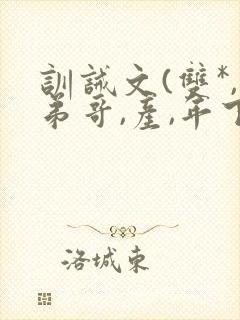 訓誡文(雙*,
弟哥,產,年下
洛城東